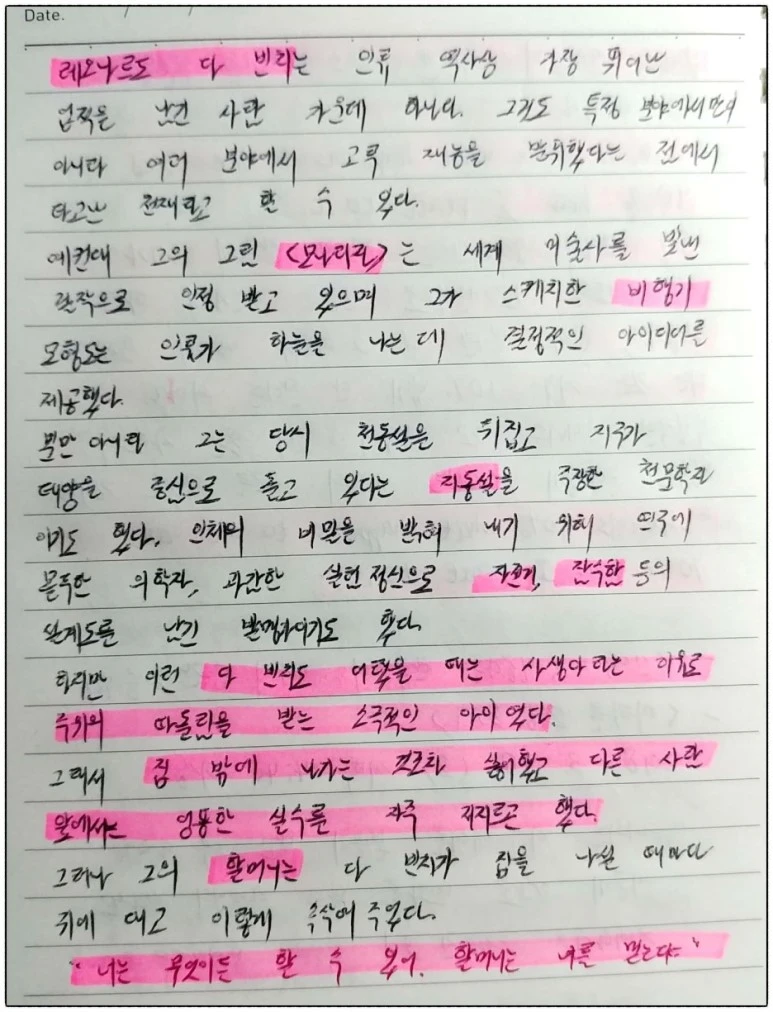 Date.
레오나르도 다 빈치는 인류 역사상 가장 뛰어난
업적을 남긴 사람 가운데 하나다. 그것도 특정 분야에서만이
아니라 여러 분야에서 고루 재능을 발휘했다는 점에서
타고난 천재라고 할 수 있다.
예컨대 그의 그림 <모나리자>는 세계 미술사를 빛낸
걸작으로 인정 받고 있으며 그가 스케치한 비행기
모형도는 인류가 하늘을 나는 데 결정적인 아이디어를
제공했다.
뿐만 아니라 그는 당시 천동설을 뒤집고 지구가
태양을 중심으로 돌고 있다는 지동설을 주장한 천문학자
이기도 했다, 인체의 비밀을 밝혀 내기 위해 연구에
몰두한 의학자, 과감한 실험 정신으로 자전거, 잠수함 등의
설계도를 남긴 발명가이기도 했다.
하지만 이런 다 빈치도 어렸을 때는 사생아라는 이유로
주위의 따돌림을 받는 소극적인 아이였다.
그래서 집 밖에 나가는 것조차 싫어했고 다른 사람
앞에서는 엉뚱한 실수를 자주 저지르곤 했다.
그러나 그의 할머니는 다 빈치가 집을 나설 때마다
귀에 대고 이렇게 속삭여 주었다.
"너는 무엇이든 할 수 있어. 할머니는 너를 믿는다."